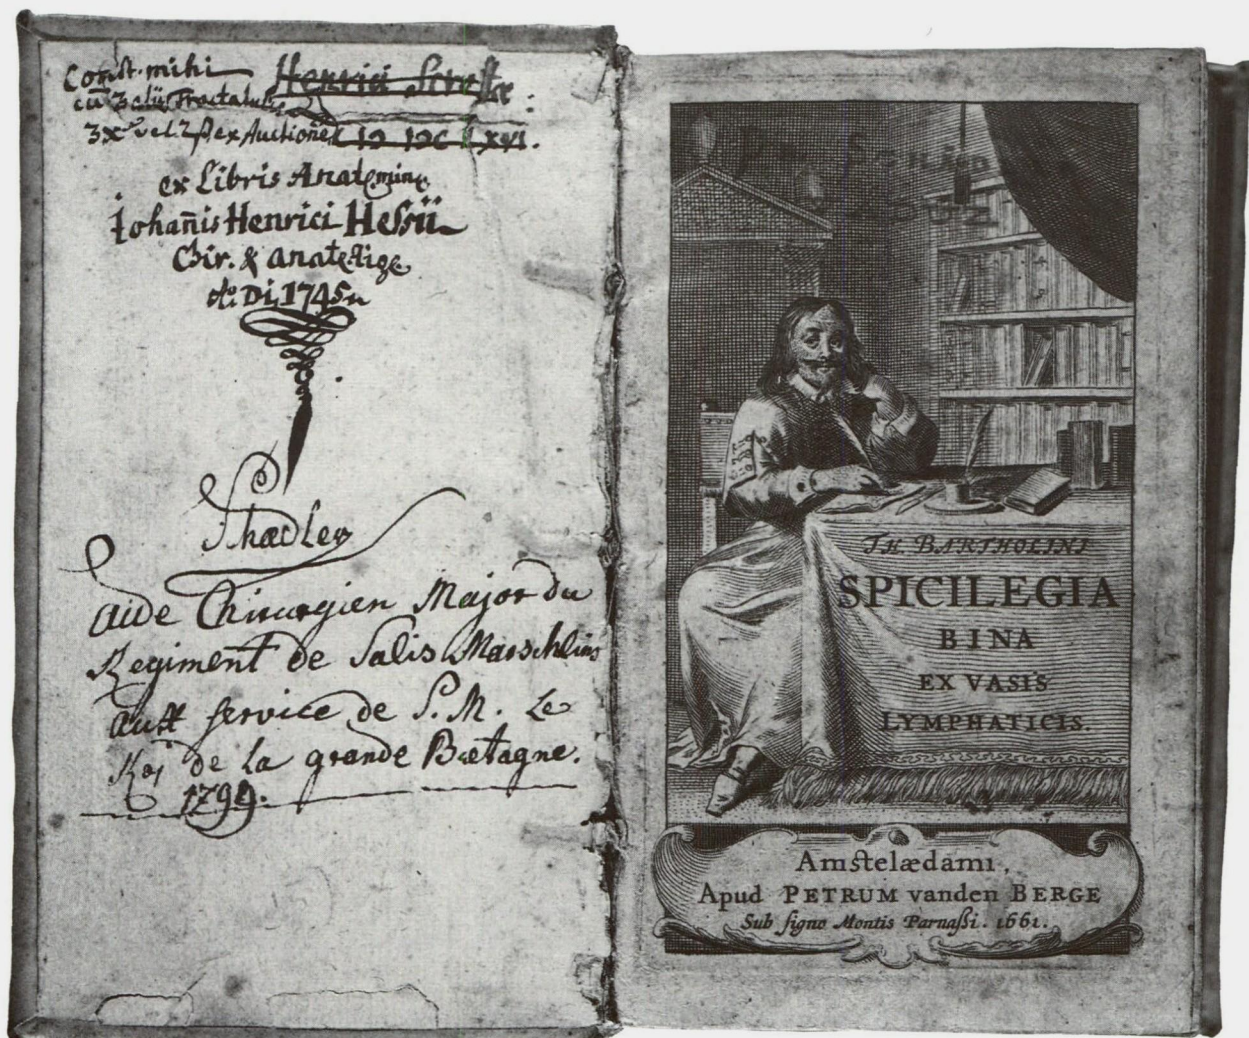 Const. mihi Henrici
cū 3 aliis Tractatulis
3x vel 2 ex Auctione
ex Libris Anatomine
Iohañis Henrici Hessii
Chir. &
Ao. Di, 1745
Thaedler
aide Chirurgien Major du
Regiment de Salis Marschlins
au service de S. M. Le
Roi de la grande Bretagne.
1799.
TH. BARTHOLINI
SPICILEGIA
BINA
EX VASIS
LYMPHATICIS.
Amstelædami,
Apud PETRUM vanden BERGE
Sub signo Montis Parnassi. 1661.